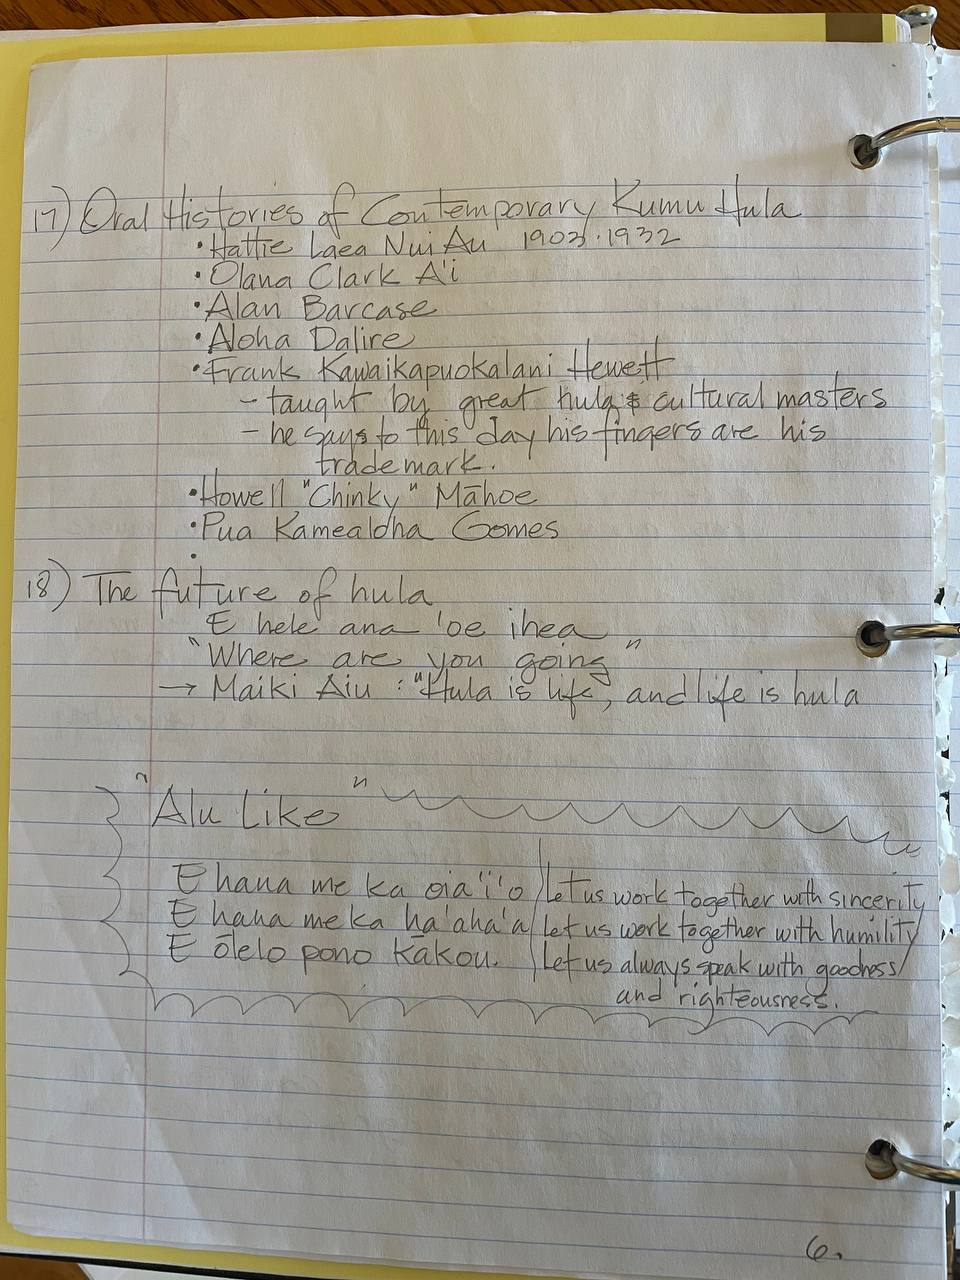 17) Oral Histories of Contemporary Kumu Hula
• Hattie Laea Nui Au 1903-1932
• Olana Clark A'i
• Alan Barcase
• Aloha Dalire
• Frank Kawaikapuokalani Hewett
- taught by great hula & cultural masters
- he says to this day his fingers are his
trademark.
• Howell "Chinky" Māhoe
• Pua Kamealoha Gomes
•
18) The future of hula
E hele ana 'oe ihea
"Where are you going"
→ Maiki Aiu : "Hula is life", and life is hula
"Alu Like"
E hana me ka oia'i'o / let us work together with sincerity
E hana me ka ha'aha'a / let us work together with humility
E ōlelo pono kākou. / Let us always speak with goodness/
and righteousness.
6.